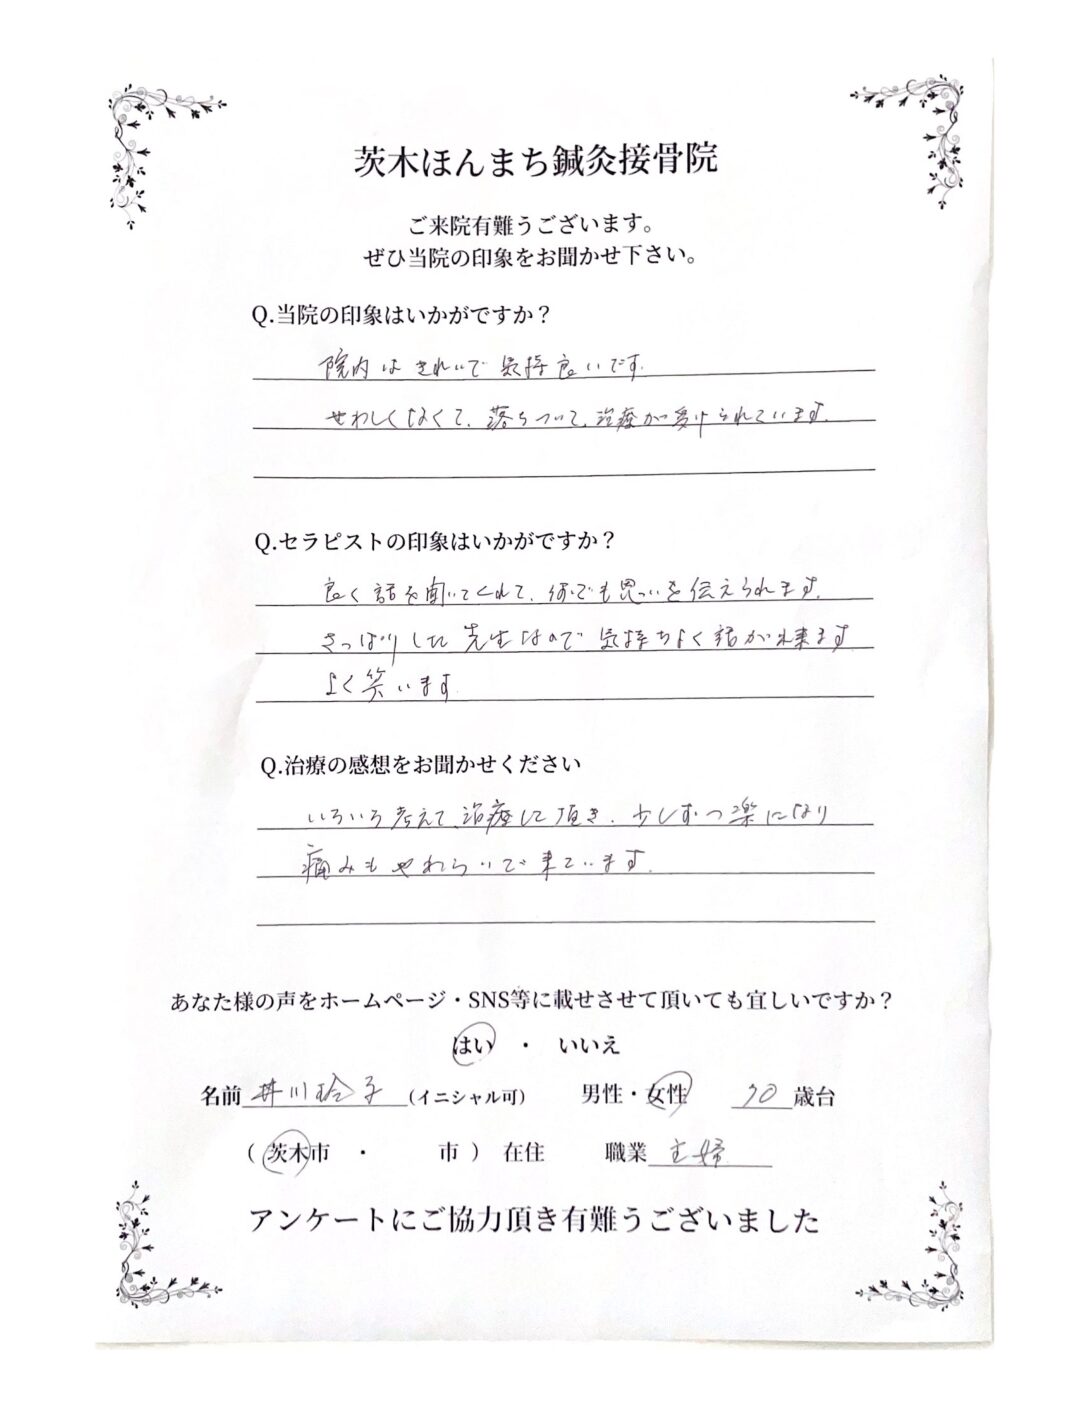 茨木ほんまち鍼灸接骨院
ご来院有難うございます。
ぜひ当院の印象をお聞かせ下さい。
Q.当院の印象はいかがですか？
院内はきれいで気持良いです.
せわしくなくて、落ちついて、治療が受けられています.
Q.セラピストの印象はいかがですか？
良く話を聞いてくれて、何でも思いを伝えられます.
さっぱりした先生なので気持ちよく話が出来ます
よく笑います.
Q.治療の感想をお聞かせください
いろいろ考えて、治療して頂き、少しずつ楽になり
痛みもやわらいで来ています.
あなた様の声をホームページ・SNS等に載せさせて頂いても宜しいですか？
はい ・ いいえ
名前 井川玲子 (イニシャル可) 男性・女性 70 歳台
( 茨木市 ・ 市 ) 在住 職業 主婦
アンケートにご協力頂き有難うございました